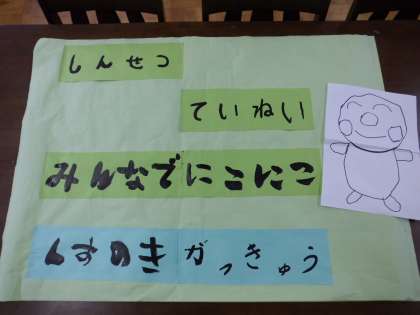 しんせつ
ていねい
みんなでにこにこ
くすのきがっきゅう